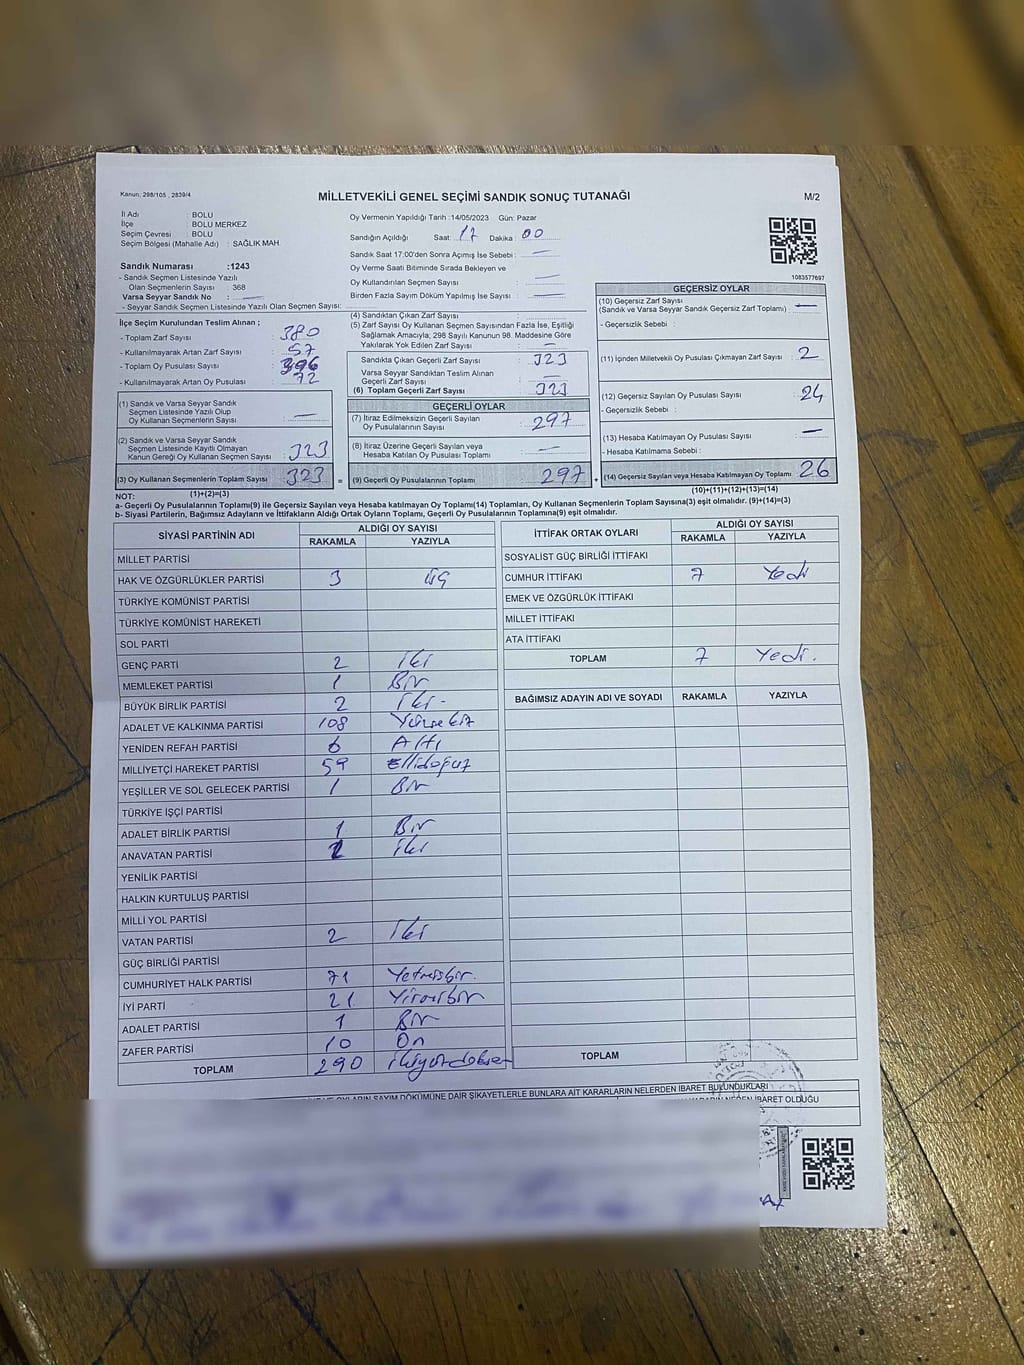 Kanun: 298/105 , 2839/4
MİLLETVEKİLİ GENEL SEÇİMİ SANDIK SONUÇ TUTANAĞI
M/2
İl Adı : BOLU
İlçe : BOLU MERKEZ
Seçim Çevresi : BOLU
Seçim Bölgesi (Mahalle Adı) : SAĞLIK MAH.
Sandık Numarası :1243
- Sandık Seçmen Listesinde Yazılı
Olan Seçmenlerin Sayısı : 368
Varsa Seyyar Sandık No : —
- Seyyar Sandık Seçmen Listesinde Yazılı Olan Seçmen Sayısı:
Oy Vermenin Yapıldığı Tarih :14/05/2023 Gün: Pazar
Sandığın Açıldığı Saat: 17 Dakika : 00
Sandık Saat 17:00'den Sonra Açımış İse Sebebi : —
Oy Verme Saati Bitiminde Sırada Bekleyen ve
Oy Kullandırılan Seçmen Sayısı : —
Birden Fazla Sayım Döküm Yapılmış İse Sayısı : —
1083577697
İlçe Seçim Kurulundan Teslim Alınan ;
- Toplam Zarf Sayısı : 380
- Kullanılmayarak Artan Zarf Sayısı : 57
- Toplam Oy Pusulası Sayısı : 396
- Kullanılmayarak Artan Oy Pusulası : 72
(1) Sandık ve Varsa Seyyar Sandık
Seçmen Listesinde Yazılı Olup
Oy Kullanan Seçmenlerin Sayısı : —
(2) Sandık ve Varsa Seyyar Sandık
Seçmen Listesinde Kayıtlı Olmayan
Kanun Gereği Oy Kullanan Seçmen Sayısı : 323
(3) Oy Kullanan Seçmenlerin Toplam Sayısı : 323
(4) Sandıktan Çıkan Zarf Sayısı :
(5) Zarf Sayısı Oy Kullanan Seçmen Sayısından Fazla İse, Eşitliği
Sağlamak Amacıyla; 298 Sayılı Kanunun 98. Maddesine Göre
Yakılarak Yok Edilen Zarf Sayısı : —
Sandıkta Çıkan Geçerli Zarf Sayısı : 323
Varsa Seyyar Sandıktan Teslim Alınan
Geçerli Zarf Sayısı : —
(6) Toplam Geçerli Zarf Sayısı : 323
GEÇERLİ OYLAR
(7) İtiraz Edilmeksizin Geçerli Sayılan
Oy Pusulalarının Sayısı : 297
(8) İtiraz Üzerine Geçerli Sayılan veya
Hesaba Katılan Oy Pusulası Toplamı : —
= (9) Geçerli Oy Pusulalarının Toplamı : 297 +
GEÇERSİZ OYLAR
(10) Geçersiz Zarf Sayısı
(Sandık ve Varsa Seyyar Sandık Geçersiz Zarf Toplamı) : —
- Geçersizlik Sebebi :
(11) İçinden Milletvekili Oy Pusulası Çıkmayan Zarf Sayısı : 2
(12) Geçersiz Sayılan Oy Pusulası Sayısı : 24
- Geçersizlik Sebebi :
(13) Hesaba Katılmayan Oy Pusulası Sayısı : —
- Hesaba Katılmama Sebebi :
(14) Geçersiz Sayılan veya Hesaba Katılmayan Oy Toplamı : 26
NOT: (1)+(2)=(3)
(10)+(11)+(12)+(13)=(14)
a- Geçerli Oy Pusulalarının Toplamı(9) ile Geçersiz Sayılan veya Hesaba Katılmayan Oy Toplamı(14) Toplamları, Oy Kullanan Seçmenlerin Toplam Sayısına(3) eşit olmalıdır. (9)+(14)=(3)
b- Siyasi Partilerin, Bağımsız Adayların ve İttifakların Aldığı Ortak Oyların Toplamı, Geçerli Oy Pusulalarının Toplamına(9) eşit olmalıdır.
SİYASİ PARTİNİN ADI ALDIĞI OY SAYISI
RAKAMLA YAZIYLA
MİLLET PARTİSİ
HAK VE ÖZGÜRLÜKLER PARTİSİ 3 üç
TÜRKİYE KOMÜNİST PARTİSİ
TÜRKİYE KOMÜNİST HAREKETİ
SOL PARTİ
GENÇ PARTİ 2 iki
MEMLEKET PARTİSİ 1 Bir
BÜYÜK BİRLİK PARTİSİ 2 iki -
ADALET VE KALKINMA PARTİSİ 108 Yüzsekiz
YENİDEN REFAH PARTİSİ 6 Altı
MİLLİYETÇİ HAREKET PARTİSİ 59 Ellidokuz
YEŞİLLER VE SOL GELECEK PARTİSİ 1 Bir
TÜRKİYE İŞÇİ PARTİSİ
ADALET BİRLİK PARTİSİ 1 Bir
ANAVATAN PARTİSİ 2 iki
YENİLİK PARTİSİ
HALKIN KURTULUŞ PARTİSİ
MİLLİ YOL PARTİSİ
VATAN PARTİSİ 2 iki
GÜÇ BİRLİĞİ PARTİSİ
CUMHURİYET HALK PARTİSİ 71 Yetmişbir.
İYİ PARTİ 21 Yirmibir
ADALET PARTİSİ 1 Bir
ZAFER PARTİSİ 10 On
TOPLAM 290 ikiyüzdoksan
İTTİFAK ORTAK OYLARI ALDIĞI OY SAYISI
RAKAMLA YAZIYLA
SOSYALİST GÜÇ BİRLİĞİ İTTİFAKI
CUMHUR İTTİFAKI 7 Yedi
EMEK VE ÖZGÜRLÜK İTTİFAKI
MİLLET İTTİFAKI
ATA İTTİFAKI
TOPLAM 7 Yedi.
BAĞIMSIZ ADAYIN ADI VE SOYADI RAKAMLA YAZIYLA
TOPLAM
OYLARIN SAYIM DÖKÜMÜNE DAİR ŞİKAYETLERLE BUNLARA AİT KARARLARIN NELERDEN İBARET BULUNDUKLARI
İBARET OLDUĞU